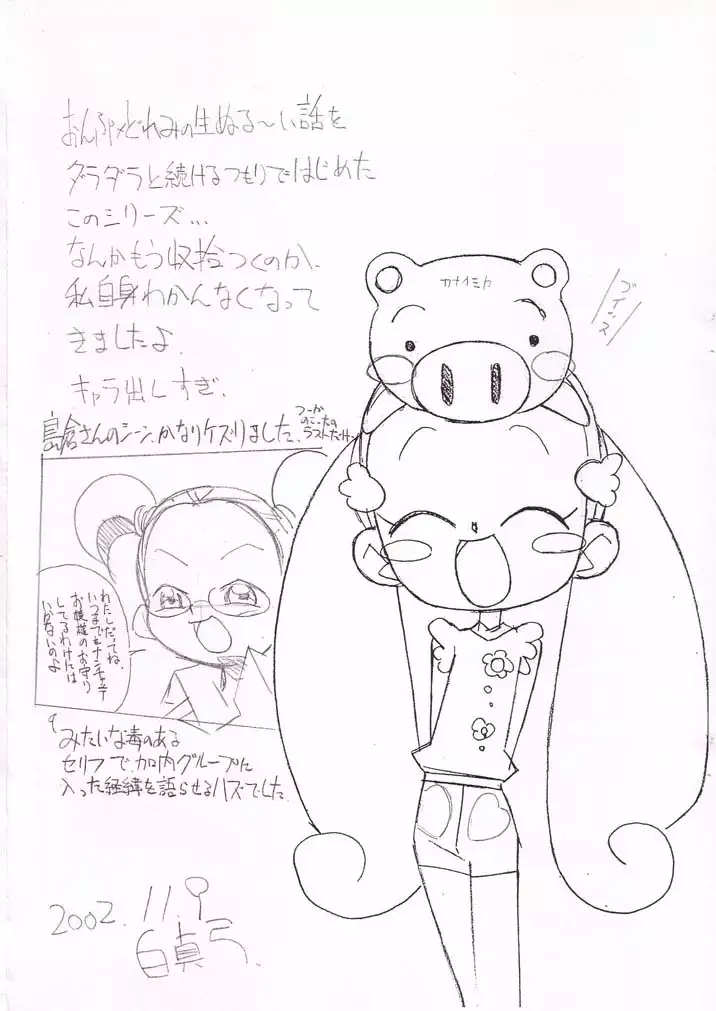 おんぷ×どれみの生ぬる〜い話を
ダラダラと続けるつもりではじめた
このシリーズ...
なんかもう収拾つくのか、
私自身わかんなくなって
きましたよ。
キャラ出しすぎ。
島倉さんのシーン、かなりケズりました。
つーか
のこったの
ラストだけ
カナイミカ
ブイッス
わたしだってね、
いつまでも
お嬢様のお守り
してるわけには
いかないのよ
みたいな毒のある
セリフで、加内グループに
入った経緯を語らせるハズでした。
2002.11.9
白真弓